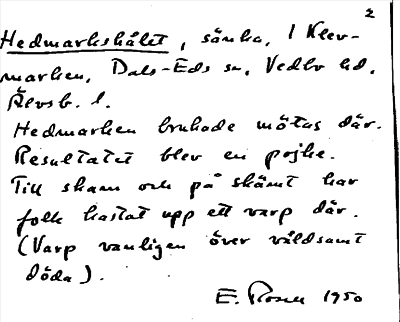 2
Hedmarkshålet, sänka, i Klev-
marken, Dals-Eds sn, Vedbo hd,
Älvsb. l.
Hedmarken brukade mötas där.
Resultatet blev en pojke.
Till skam och på skämt har
folk kastat upp ett varp där.
(Varp vanligen över våldsamt
döda).
E. Rosell 1950